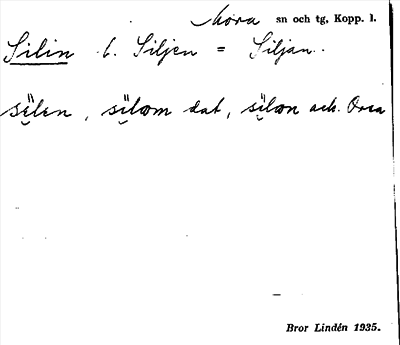 Mora sn och tg, Kopp. l.
Silin l. Siljen = Siljan.
sïlen, sïlæm dat, sïlæn ack. Orsa
Bror Lindén 1935.